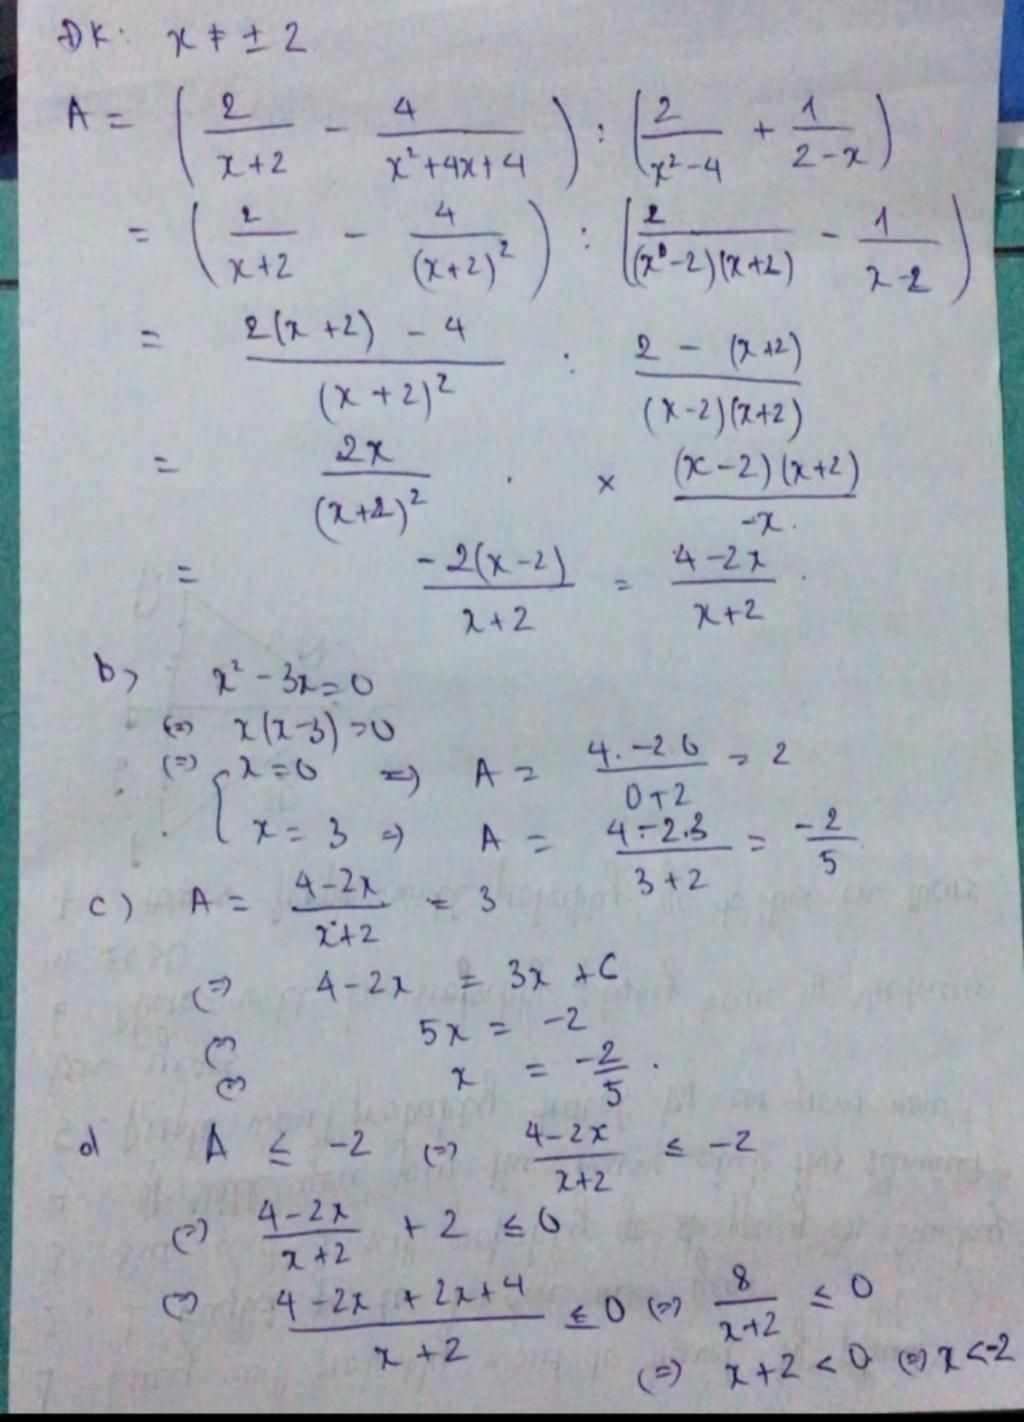 ĐK: x ≠ ± 2
A = ( 2/(x+2) - 4/(x²+4x+4) ) : ( 2/(x²-4) + 1/(2-x) )
= ( 2/(x+2) - 4/(x+2)² ) : ( 2/((x-2)(x+2)) - 1/(x-2) )
= (2(x+2) - 4)/(x+2)² : (2 - (x+2))/((x-2)(x+2))
= 2x/(x+2)² × ((x-2)(x+2))/(-x)
= (-2(x-2))/(x+2) = (4-2x)/(x+2)
b, x² - 3x = 0
(=) x(x-3) = 0
(=) { x = 0 => A = (4.-2.0)/(0+2) = 2
x = 3 => A = (4-2.3)/(3+2) = -2/5
c) A = (4-2x)/(x+2) = 3
(=) 4-2x = 3x + 6
(=) 5x = -2
(=) x = -2/5.
d A ≤ -2 (=) (4-2x)/(x+2) ≤ -2
(=) (4-2x)/(x+2) + 2 ≤ 0
(=) (4-2x+2x+4)/(x+2) ≤ 0 (=) 8/(x+2) ≤ 0
(=) x+2 < 0 (=) x < -2